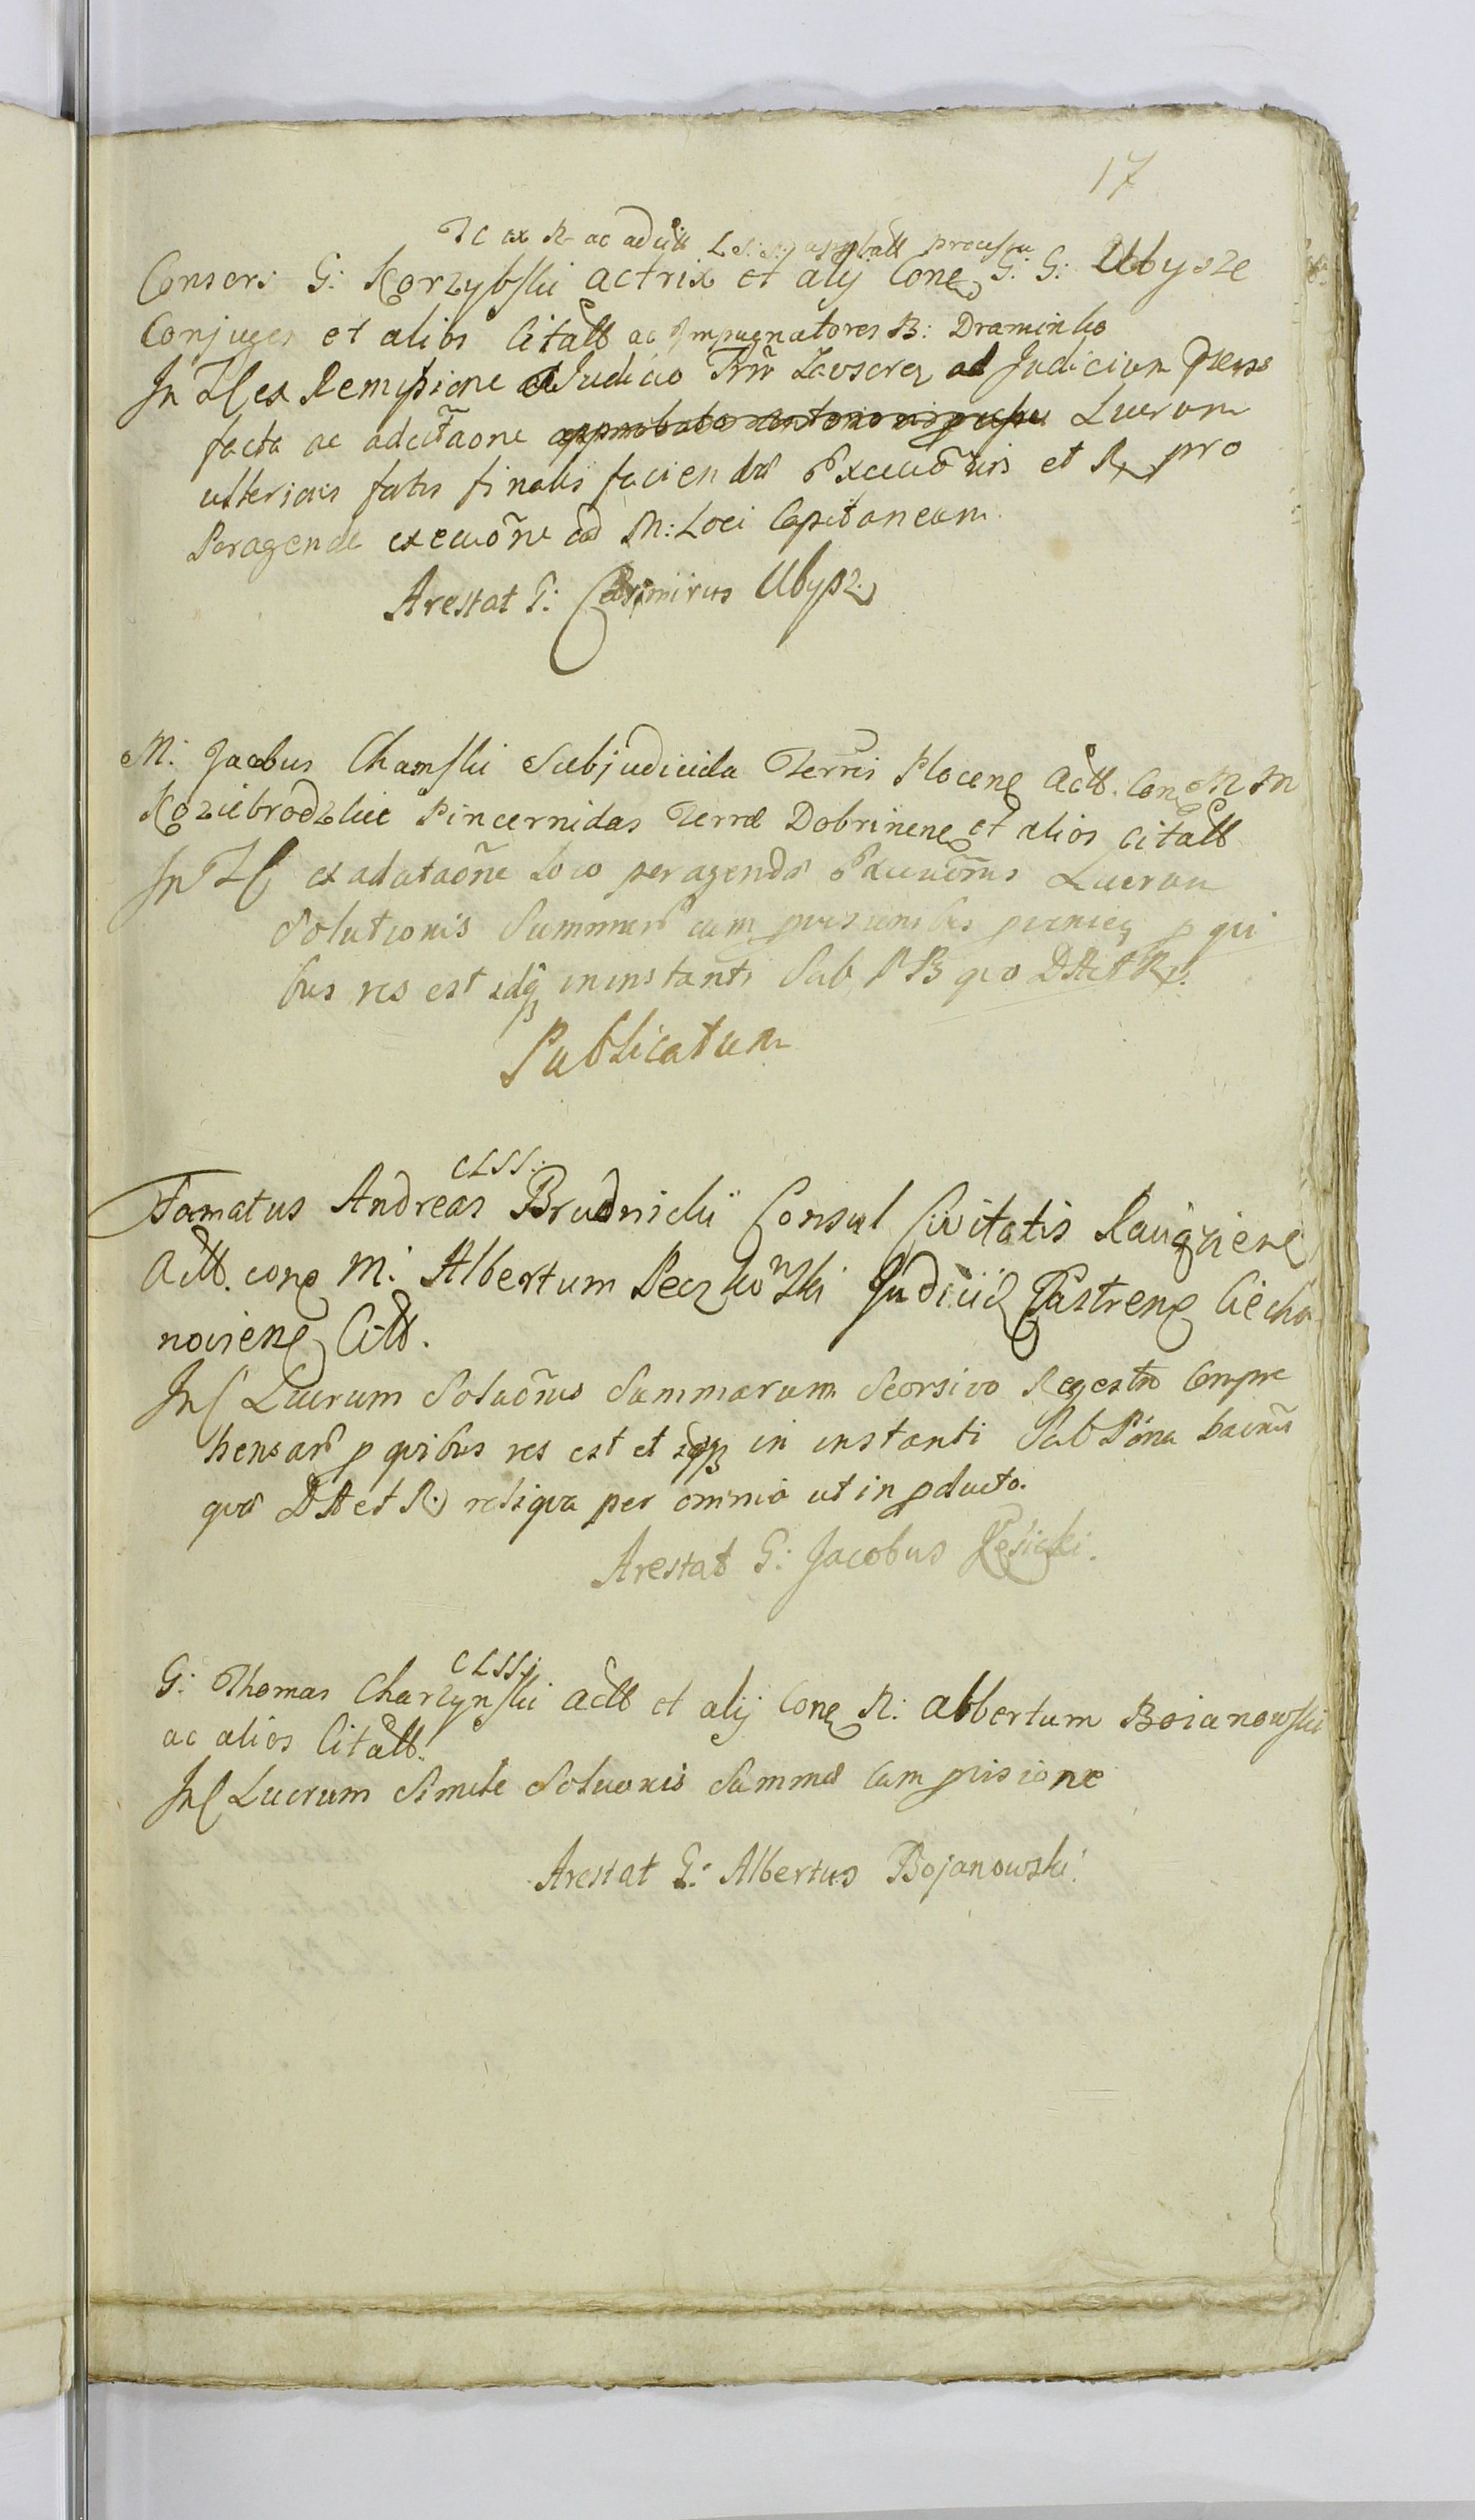 17
TC ex R ac adcitt L S: S: approbatt processu
Consors G: Korzybski actrix et alij Cone G: G: Ubysze
Conjuges et alios Citatt ac Impugnatores B: Draminko
In TC ex Remissione a Judicio Zavscrez ad Judicium praens
facta ac adcitaõne Lucrum
ulterioris fatis finalis faciendae Execuõnis et R pro
Peragenda execuõne ad M: Loci Capitaneum
Arestat G: Casimirus Ubysz
M: Jacobus Chamski Subjudicida Terris Plocene Actt. Cone M M
Koziebrodzkie Pincernidas Terrae Dobrinene et alios citatt
In TC ex adcitaõne loco peragendae Execuõnis Lucrum
Solutionis Summae cum provisionibus p qui
bus res est idq in instanti Sub P B quo DA et R
Publicatum
CLSS.
Famatus Andreas Brudnicki Consul Civitatis Raciąziene
Actt. cone M: Albertum Peczkowski Judicid Castrene Ciecha
noviene Citt.
In C Lucrum Soluõnis Summarum Seorsivo Regestro Compre
hensar p quibus res est et idq in instanti Sub Pöna banis
qua DA et R reliqua per omnia ut in pducto.
Arestat G: Jacobus Lesicki.
CLSS.
G: Thomas Charzynski actt et alij Cone N: albertum Boianowski
ac alios Citatt.
In C Lucrum Simile Soluonis Summae Cum pvisione
Arestat G: Albertus Bojanowski